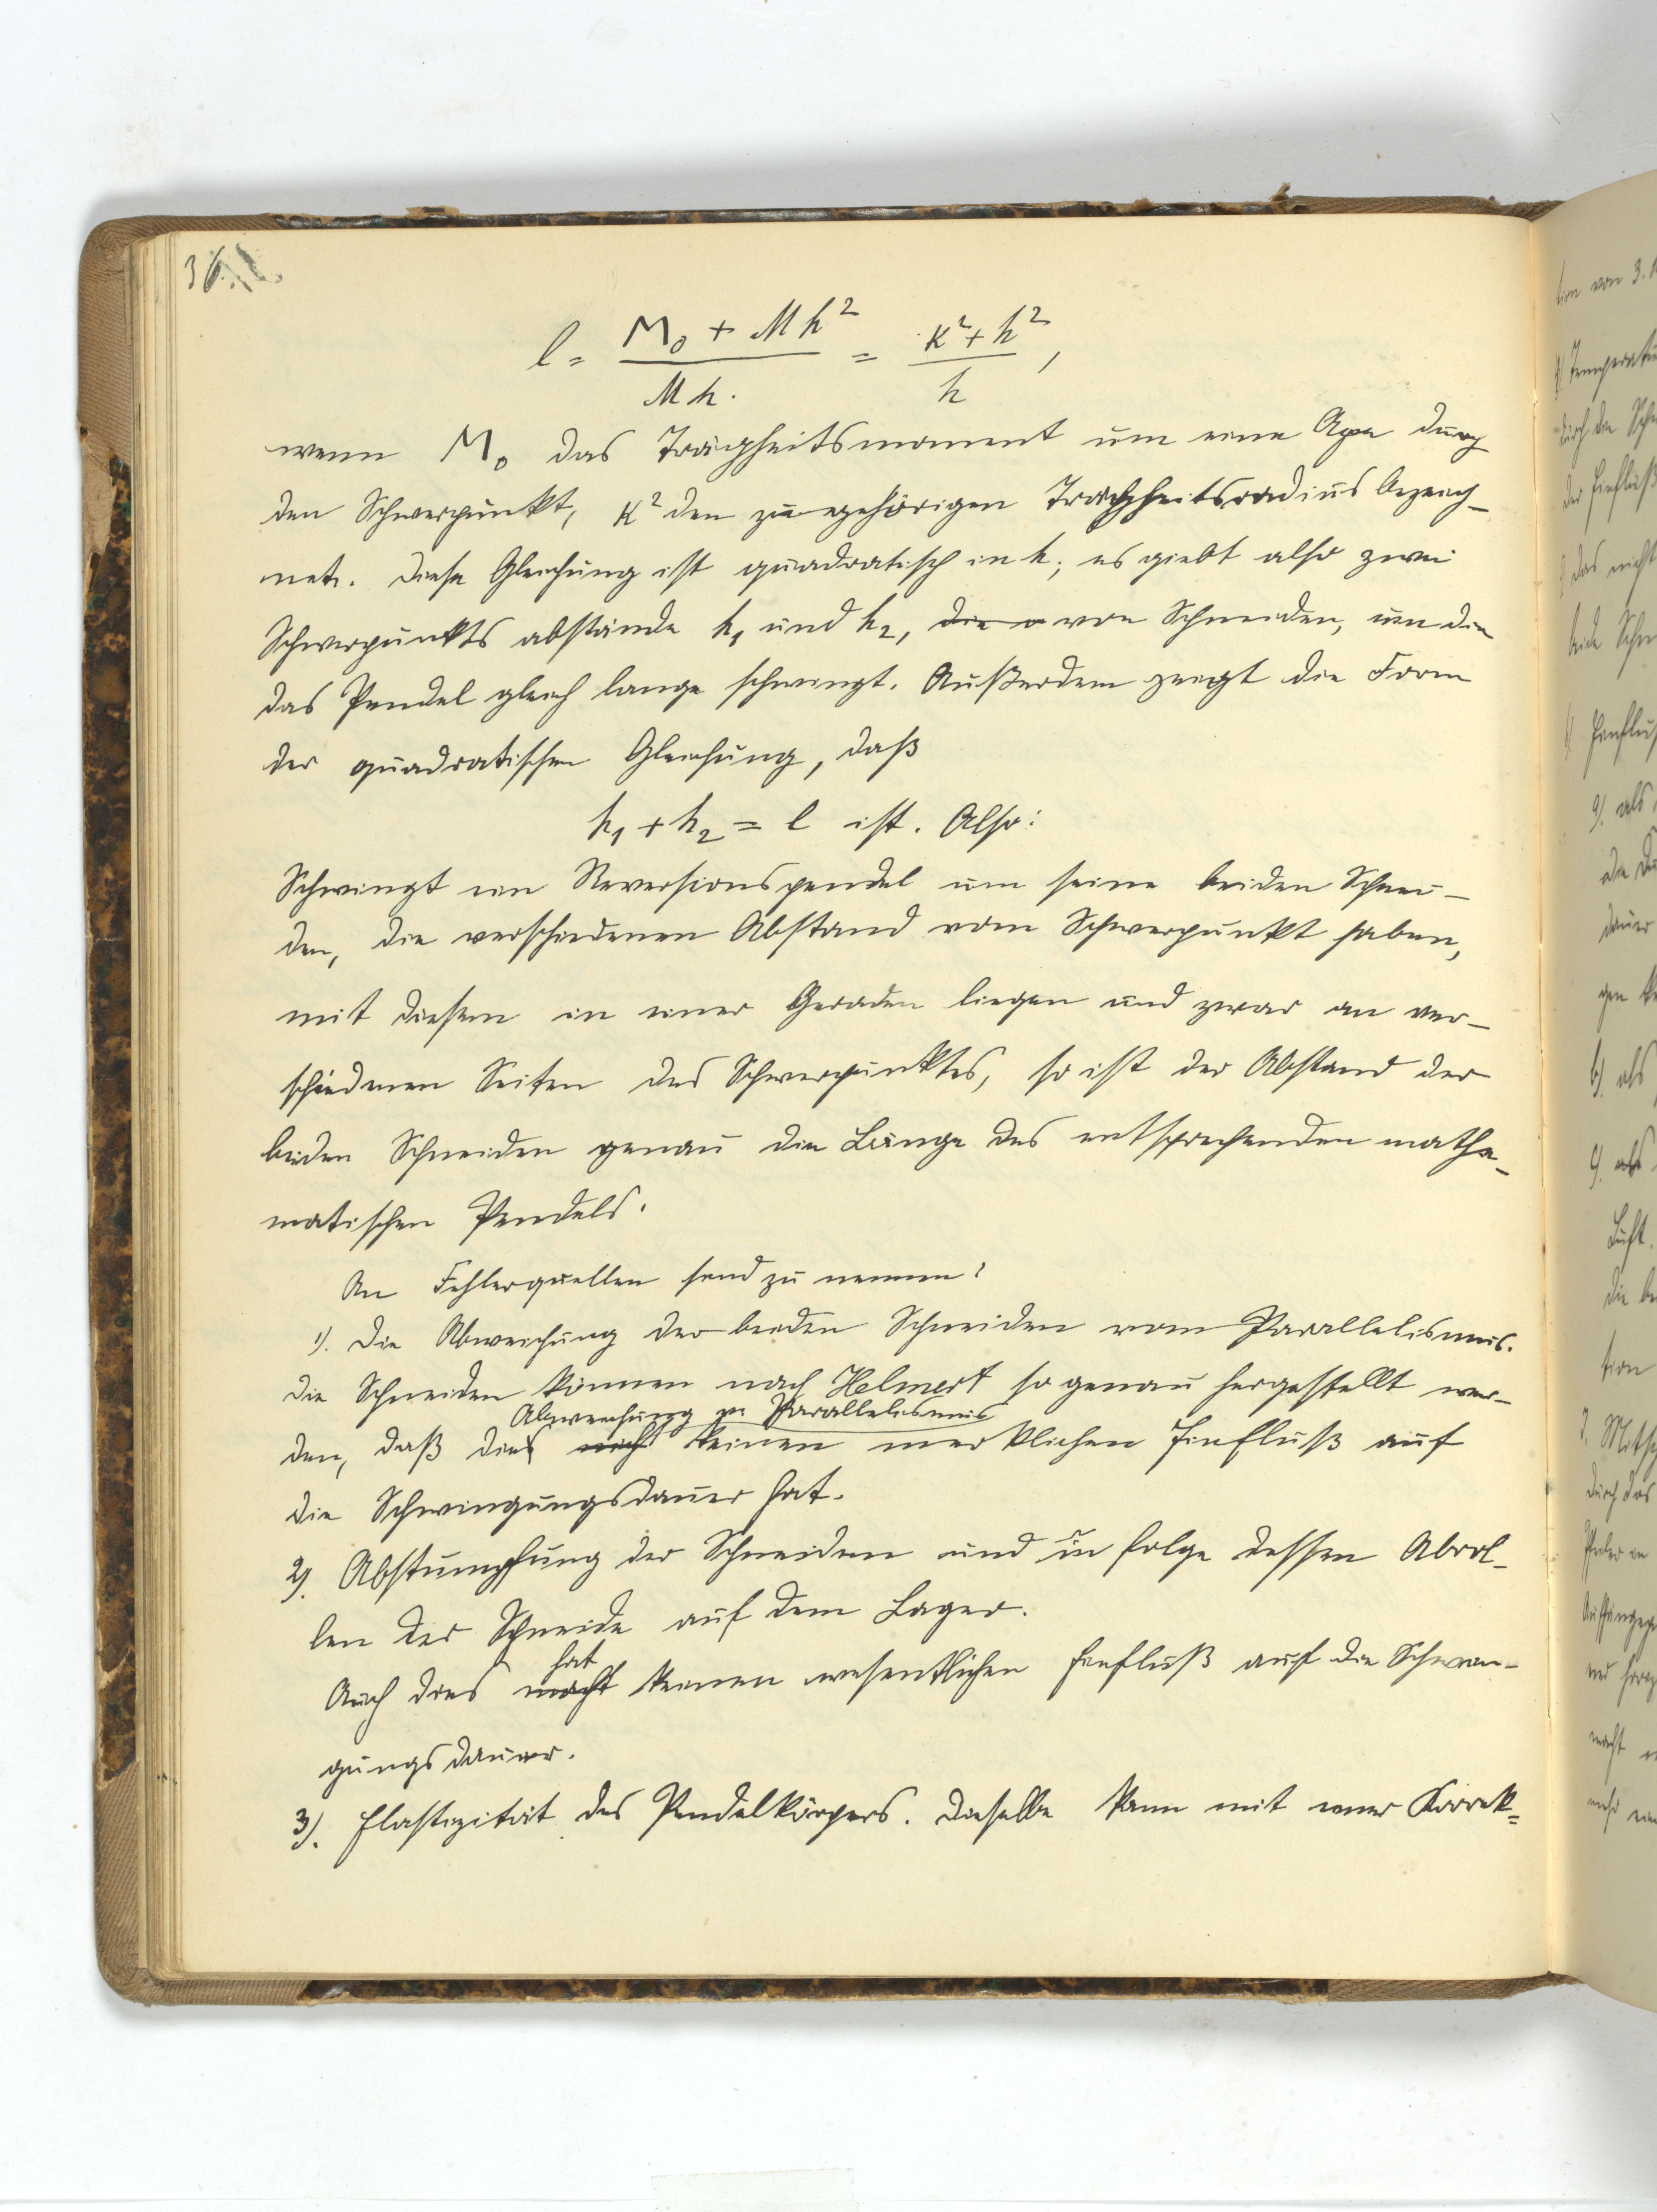 36.
l = (M₀ + M h²) / (M h.) = (K² + h²) / h,
wenn M₀ das Trägheitsmoment um eine Axe durch
den Schwerpunkt, K² den zugehörigen Trägheitsradius bezeich-
net. Diese Gleichung ist quadratisch in h; es giebt also zwei
Schwerpunktsabstände h₁ und h₂, die von Schneiden, um die
das Pendel gleich lange schwingt. Außerdem zeigt die Form
der quadratischen Gleichung, daß
h₁ + h₂ = l ist. Also:
Schwingt ein Reversionspendel um seine beiden Schnei-
den, die verschiedenen Abstand vom Schwerpunkt haben,
mit diesem in einer Geraden liegen und zwar an ver-
schiedenen Seiten des Schwerpunktes, so ist der Abstand der
beiden Schneiden genau die Länge des entsprechenden mathe-
matischen Pendels.
An Fehlerquellen sind zu nennen:
1). Die Abweichung der beiden Schneiden vom Parallelismus.
Die Schneiden können nach Helmert so genau hergestellt wer-
Abweichung v. Parallelismus
den, daß dies nicht keinen merklichen Einfluß auf
die Schwingungsdauer hat.
2). Abstumpfung der Schneiden und in folge dessen Abrol-
len der Schneide auf dem Lager.
hat
Auch dies macht keinen wesentlichen Einfluß auf die Schwin-
gungsdauer.
3). Elastizität des Pendelkörpers. Dieselbe kann mit einer Korrek-